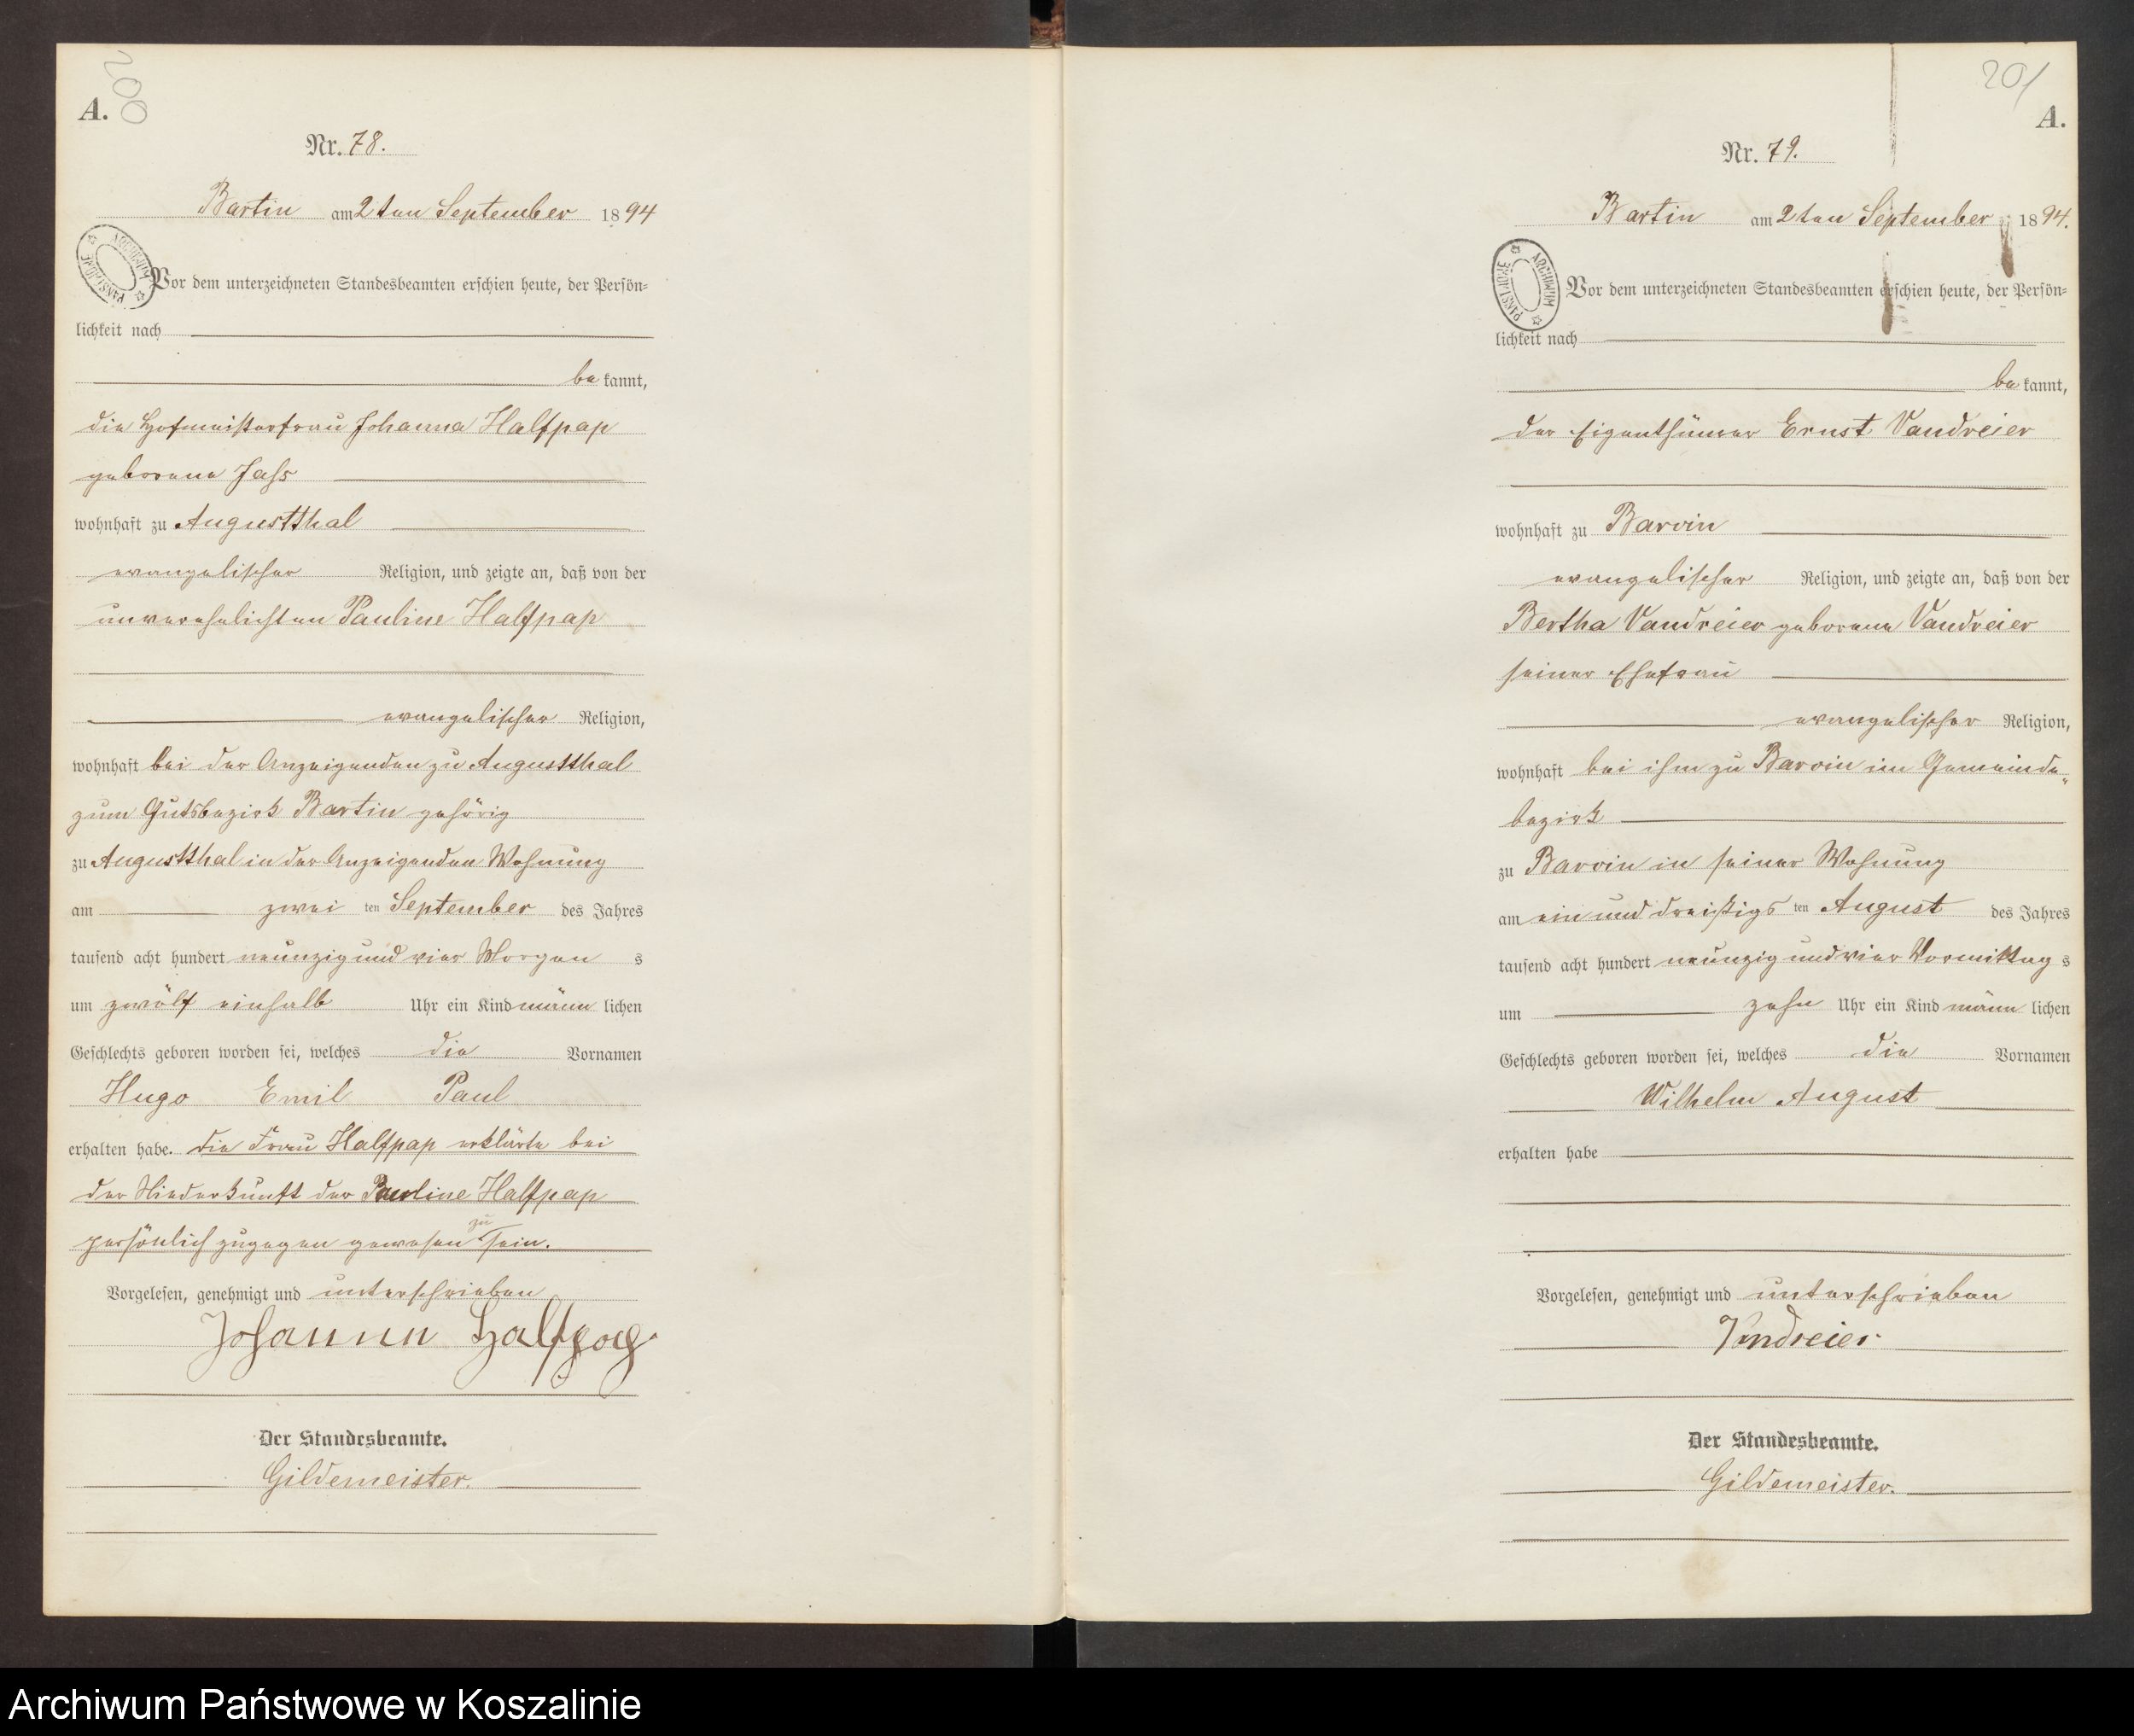 200
A.
Nr. 78.
Bartin am 2ten September 1894
ARCHIWUM PAŃSTWOWE
Vor dem unterzeichneten Standesbeamten erschien heute, der Persön=
lichkeit nach
be kannt,
die Hofmeisterfrau Johanna Halfpap
geborene Jass
wohnhaft zu Augustthal
evangelischer Religion, und zeigte an, daß von der
unverehelichten Pauline Halfpap
evangelischer Religion,
wohnhaft bei der Anzeigenden zu Augustthal
zum Gutsbezirk Bartin gehörig
zu Augustthal in der Anzeigenden Wohnung
am zwei ten September des Jahres
tausend acht hundert neunzig und vier Morgen s
um zwölf einhalb Uhr ein Kind männ lichen
Geschlechts geboren worden sei, welches die Vornamen
Hugo Emil Paul
erhalten habe. die Frau Halfpap erklärte bei
der Niederkunft der Pauline Halfpap
persönlich zugegen gewesen zu sein.
Vorgelesen, genehmigt und unterschrieben
Johanna Halfpap
Der Standesbeamte.
Gildemeister.
201
A.
Nr. 79.
Bartin am 2ten September 1894.
ARCHIWUM PAŃSTWOWE
Vor dem unterzeichneten Standesbeamten erschien heute, der Persön=
lichkeit nach
be kannt,
der Eigenthümer Ernst Vandreier
wohnhaft zu Barvin
evangelischer Religion, und zeigte an, daß von der
Bertha Vandreier geborene Vandreier
seiner Ehefrau
evangelischer Religion,
wohnhaft bei ihm zu Barvin im Gemeinde„
bezirk
zu Barvin in seiner Wohnung
am ein und dreißigs ten August des Jahres
tausend acht hundert neunzig und vier Vormittag s
um zehn Uhr ein Kind männ lichen
Geschlechts geboren worden sei, welches die Vornamen
Wilhelm August
erhalten habe
Vorgelesen, genehmigt und unterschrieben
Vandreier
Der Standesbeamte.
Gildemeister.
Archiwum Państwowe w Koszalinie